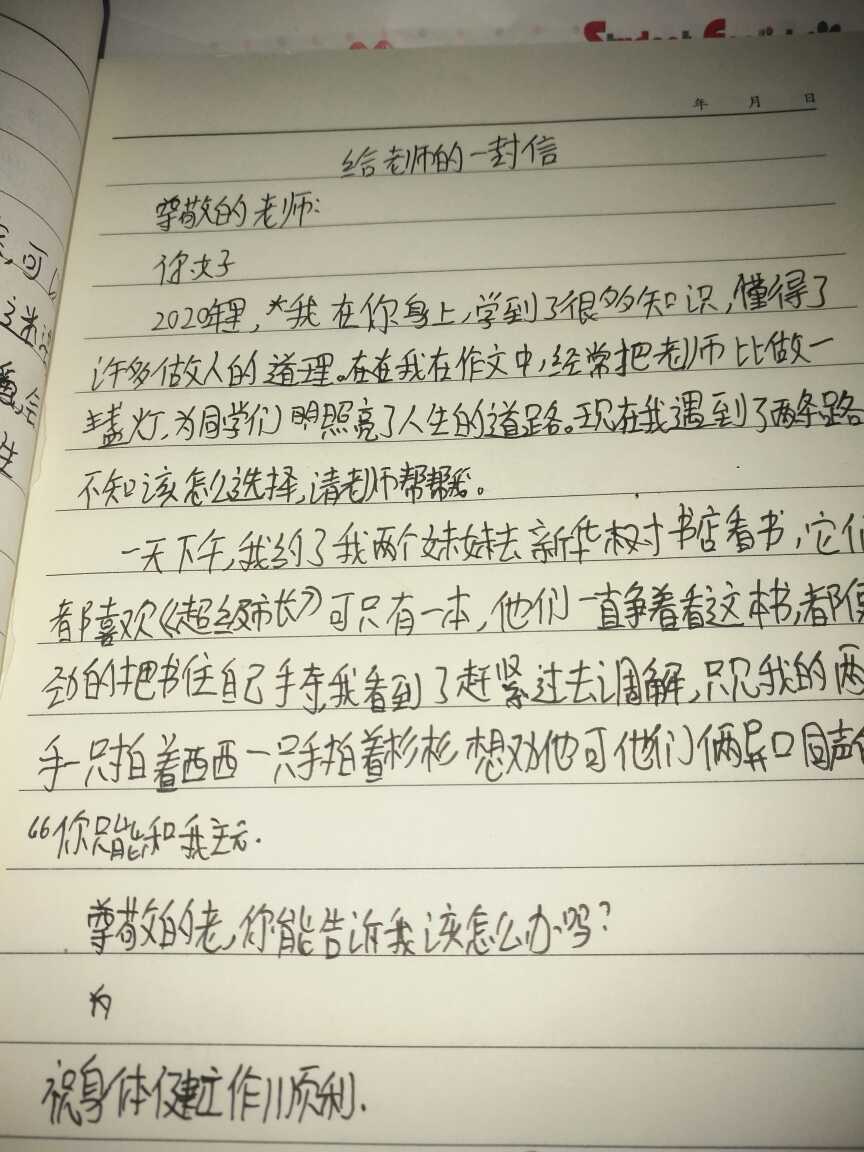 年 月 日
给老师的一封信
尊敬的老师:
你好
2020年里,我在你身上,学到了很多知识,懂得了
许多做人的道理。在我在作文中,经常把老师比做一
盏灯,为同学们照亮了人生的道路。现在我遇到了两条路
不知该怎么选择,请老师帮帮我。
一天下午,我约了我两个妹妹去新华树书店看书,它们
都喜欢《超级市长》可只有一本,他们一直争着看这本书,都使
劲的把书住自己手夺,我看到了赶紧过去调解,只见我的两
手一只拍着西西一只手拍着杉杉想劝他可他们俩异口同声
“你只能和我玩.
尊敬的老,你能告诉我该怎么办吗?
祝身体健工作川顺利.